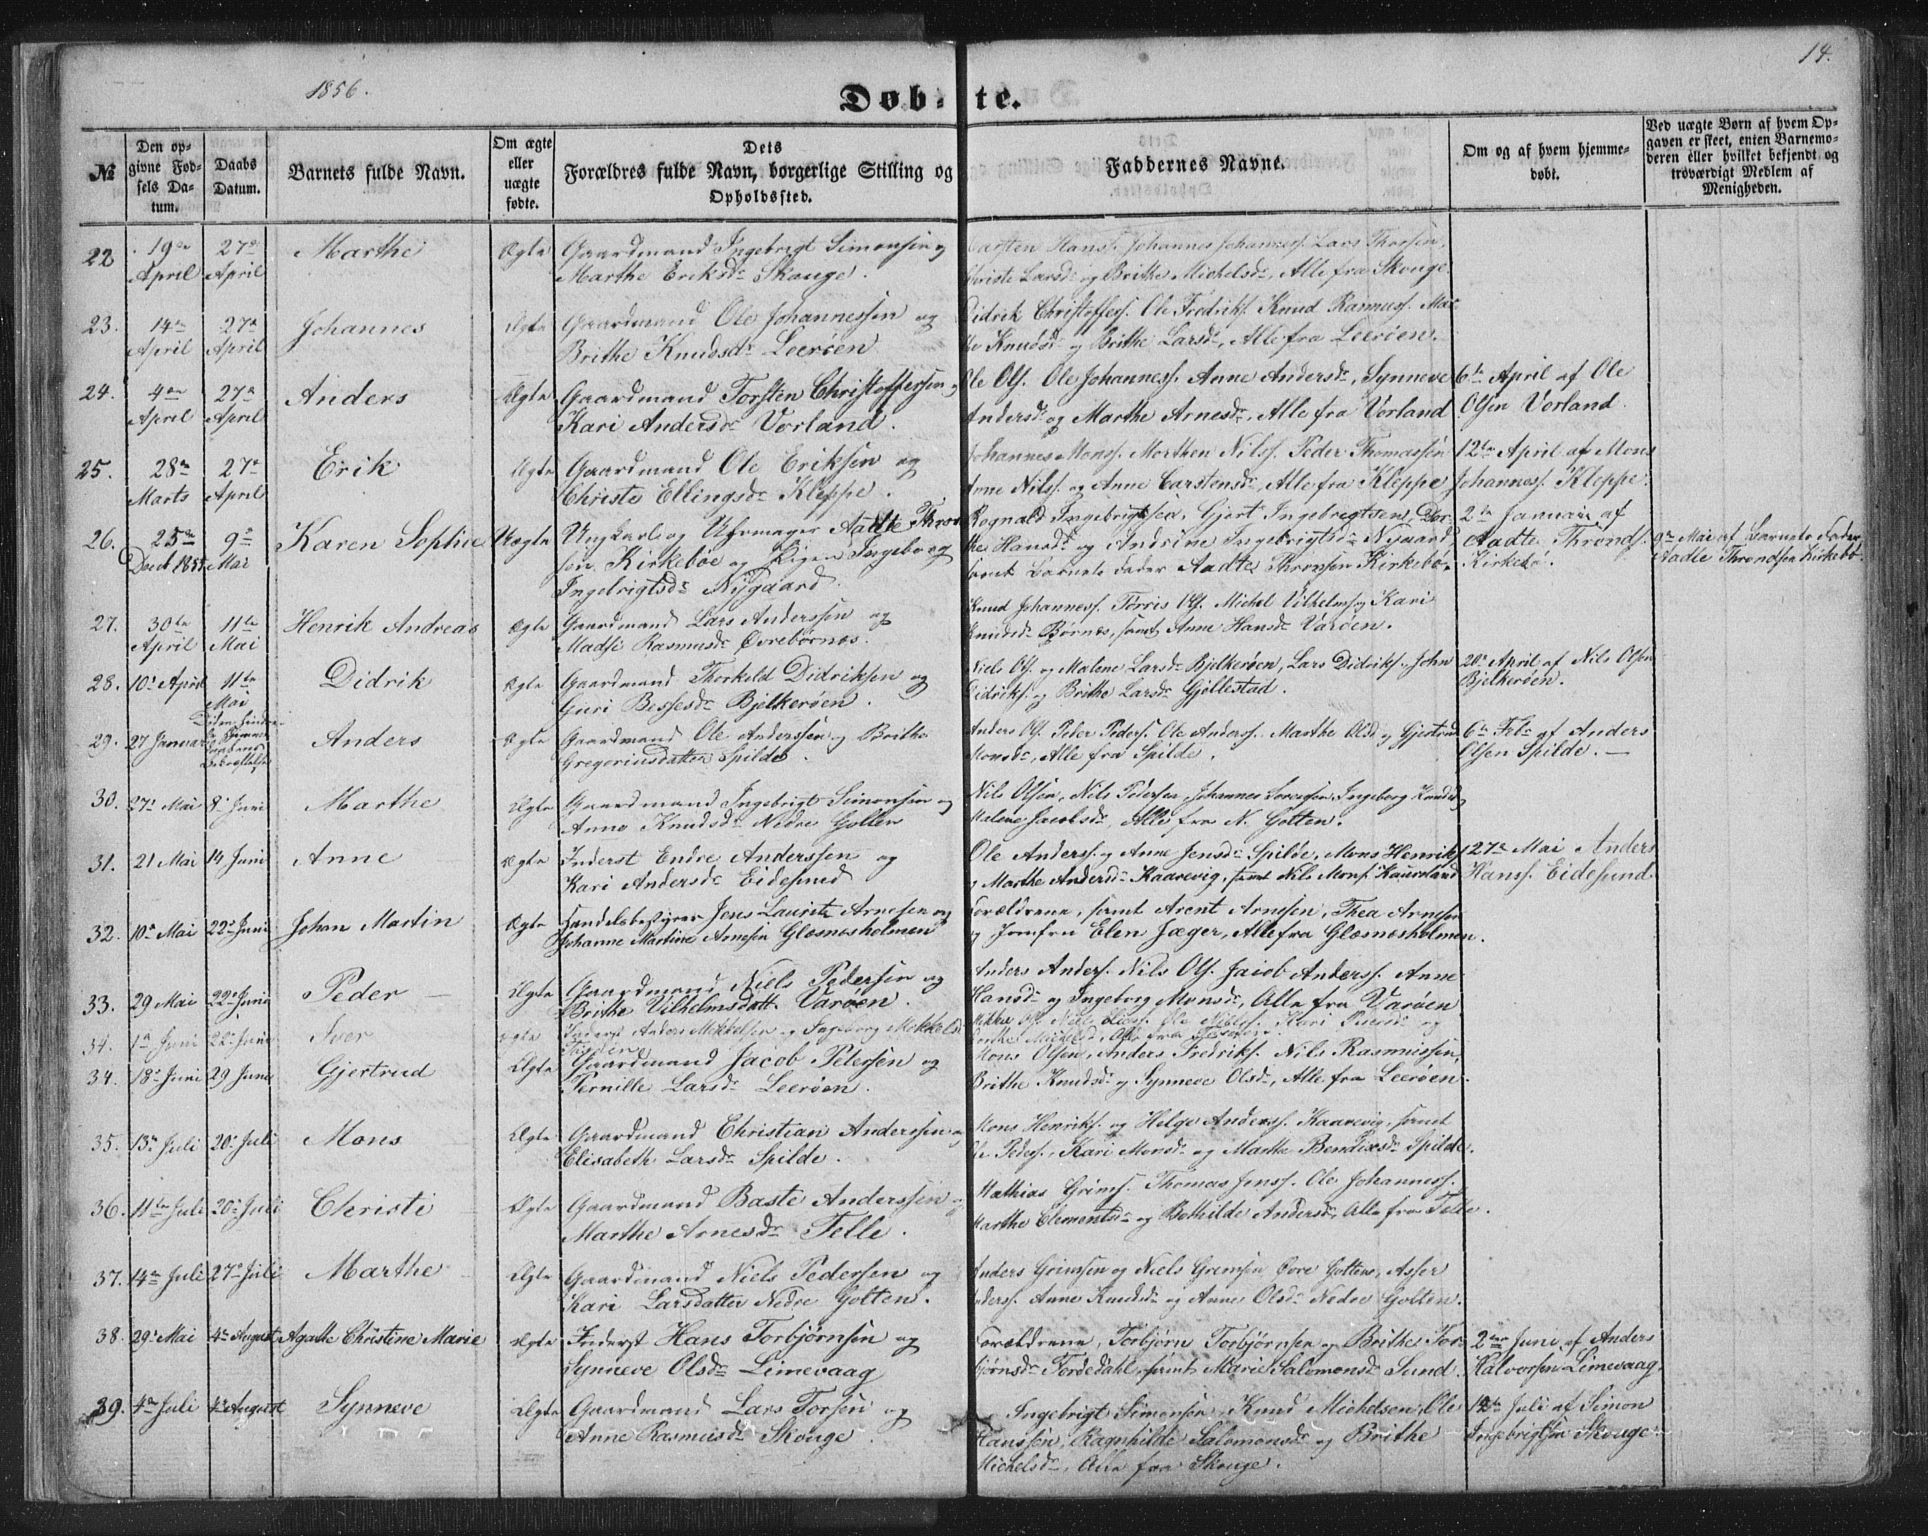 1856.
14.
Døbte.
№
Den opgivne Fødsels Datum.
Daabs Datum.
Barnets fulde Navn.
Om ægte eller uægte fødte.
Dets Forældres fulde Navn, borgerlige Stilling og Opholdssted.
Faddernes Navne.
Om og af hvem hjemmedøbt.
Ved uægte Børn af hvem Opgaven er skeet, enten Barnemoderen eller hvilket bekjendt og troværdigt Medlem af Menigheden.
22 19de April 27de April Marthe Ægte Gaardmand Ingebrigt Simonsen og
Marthe Eriksdr Skouge.
Carsten Hanss. Johannes Johanness. Lars Thorsen,
Christe Larsdr og Brithe Michelsdr, Alle fra Skouge
23. 14de April 27de April Johannes Ægte Gaardmand Ole Johannessen og
Brithe Knudsdr Leerøen
Didrik Christoffers. Ole Fredriks. Knud Rasmuss.
Knudsdr og Brithe Larsdr, Alle fra Leerøen.
24. 4de April 27de April Anders Ægte Gaardmand Torsten Christoffersen og
Kari Andersdr Vorland.
Ole Ols. Ole Johanness. Anne Andersdr, Synneve
Andersdr og Marthe Arnesdr, Alle fra Vorland
6te April af Ole
Olsen Vorland.
25. 28de Marts 27de April Erik Ægte Gaardmand Ole Eriksen og
Christe Ellingsdr Kleppe.
Johannes Monss. Morthen Nilss. Peder Thomassen
Arne Nilss. og Anne Carstensdr, Alle fra Kleppe
12te April af Mons
Johanness. Kleppe.
26. 25de Decb 1855 9de Mai Karen Sophie Uægte Ungkarl og Uhrmager Aadte Thron-
sen Kirkebøe og Pigen Ingeborg
Ingebrigtsdr Nygaard.
Rognald Ingebrigtsen, Gjert Ingebrigtsen, Dor-
the Hansdr og Andrine Ingebrigtsdr Nygaard
samt Barnets Fader Aadte Thronsen Kirkebø.
2de Januar af
Aadte Thronds.
Kirkebø.
9de Mai af Barnets Fader
Aadte Throndsen Kirkebø.
27. 30te April 11te Mai Henrik Andreas Ægte Gaardmand Lars Anderssen og
Madsi Rasmusdr Øvrebørnes.
Knud Johanness. Torris Ols. Michel Vilhelms. og Kari
Knudsdr Børnes, samt Anne Hansdr Varøen.
28. 10de April 11te Mai Didrik Ægte Gaardmand Thorkild Didriksen og
Guri Bessesdr Bjelkerøen.
Niels Ols. og Malene Larsdr Bjelkerøen, Lars Didriks. John
Didriks. og Brithe Larsdr Gjøllestad.
20de April af Nils Olsen
Bjelkerøen.
29. 27 Januar Anders Ægte Gaardmand Ole Anderssen og Brithe
Gregoriusdatter Spilde.
Anders Ols. Peder Peders. Ole Anderss. Marthe Olsdr og Gjertrud
Monsdr, Alle fra Spilde.
6te Febr af Anders
Olsen Spilde.
30. 27de Mai 8de Juni Marthe Ægte Gaardmand Ingebrigt Simonsen og
Anne Knudsdr Nedre Golten
Nils Olsen, Nils Pedersen, Johannes Sorensen, Ingeborg Knudsdr og
Malene Jacobsdr, Alle fra N. Golten.
31. 21 Mai 14 Juni Anne Ægte Inderst Endre Anderssen og
Kari Andersdr Eidesund
Ole Anderss. og Anne Jensdr Spilde, Mons Henriks.
og Marthe Andersdr Kaarevig, samt Nils Mons.
27de Mai Anders
Hanss. Eidesund.
32. 10de Mai 22de Juni Johan Martin Ægte Handelsbestyrer Jens Lauritz Arnesen og
Johanne Martine Arnesen Glæsnæsholmen
Forældrene, samt Arent Arnesen, Thea Arnesen
og Jomfru Elen Jæger, Alle fra Glæsnæsholmen.
33. 29 Mai 22de Juni Peder Ægte Gaardmand Niels Pedersen og
Brithe Vilhelmsdatt. Varøen.
Anders Anders. Nils Ols. Jacob Anderss. Anne
Hansdr og Ingeborg Monsdr, Alle fra Varøen
34. 1de Juni 22de Juni Iver Ægte Inderst Anders Mikkelsen og Ingeborg Mikkelsdr
34. 18de Juni 29 Juni Gjertrud Ægte Gaardmand Jacob Petersen og
Pernille Larsdr Leerøen.
Mons Olsen, Anders Fredriks. Nils Rasmussen,
Brithe Knudsdr og Synneve Olsdr, Alle fra Leerøen.
35. 13de Juli 20de Juli Mons Ægte Gaardmand Christian Anderssen og
Elisabeth Larsdr Spilde.
Mons Henriks. og Helge Anderss. Kaarevig, samt
Ole Peders. Kari Monsdr og Marthe Bendixsdr Spilde.
36. 11te Juli 20de Juli Christi Ægte Gaardmand Baste Anderssen og
Marthe Arnesdr Telle.
Mathias Grims. Thomas Jenss. Ole Johanness.
Marthe Clementsdr og Bothilde Andersdr, Alle fra Telle.
37. 14de Juli 27de Juli Marthe Ægte Gaardmand Niels Pedersen og
Kari Larsdatter Nedre Golten.
Anders Grimsen og Niels Grimsen Øvre Golten, Asser
Anderss. Anne Knudsdr og Anne Olsdr Nedre Golten.
38. 29de Mai 4de August Agathe Christine Marie Ægte Inderst Hans Torbjørnsen og
Synneve Olsdr Limevaag
Forældrene, Torbjørn Torbjørnsen og Brithe Tor-
bjørnsdr Tordedahl, samt Marie Salomonsdr Sund.
2den Juni af Anders
Halvorsen Limevaag.
39. 4de Juli 4de August Synneve Ægte Gaardmand Lars Torsen og
Anne Rasmusdr Skouge.
Ingebrigt Simonsen, Knud Michelsen, Ole
Hanssen, Ragnhilde Salomonsdr og Brithe
Michelsdr, Alle fra Skouge.
12te Juli af Simon
Ingebrigtsen Skouge.